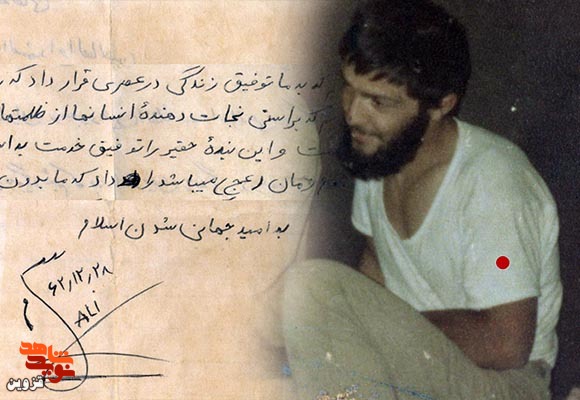 که به ما توفیق زندگی در عصری قرار داد که
که براستی نجات دهندهٔ انسانها از ظلمتها
و این بندهٔ حقیر را توفیق خدمت
میباشد را داد که ما بدون
به امید جهانی شدن اسلام
۶۲٫۱۲٫۲۸
ALI
نوید شاهد
قزوین